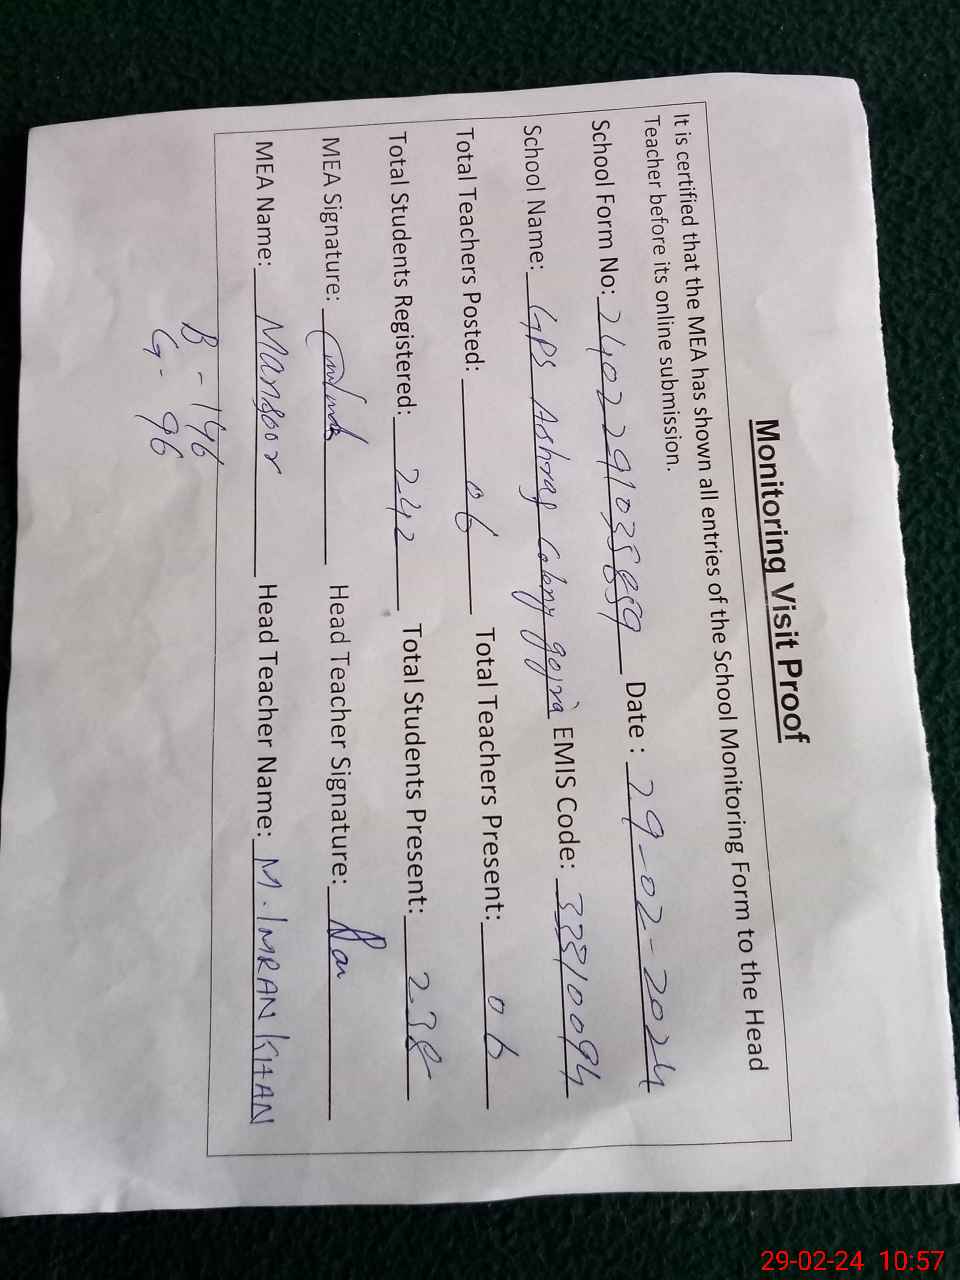 Monitoring Visit Proof
It is certified that the MEA has shown all entries of the School Monitoring Form to the Head
Teacher before its online submission.
School Form No: 24022291035859 Date : 29-02-2024
School Name: GPS Ashraf Colony gojra EMIS Code: 33310094
Total Teachers Posted: 06 Total Teachers Present: 06
Total Students Registered: 242 Total Students Present: 238
MEA Signature: Head Teacher Signature:
MEA Name: Mansoor Head Teacher Name: M. IMRAN KHAN
B - 146
G - 96
29-02-24 10:57